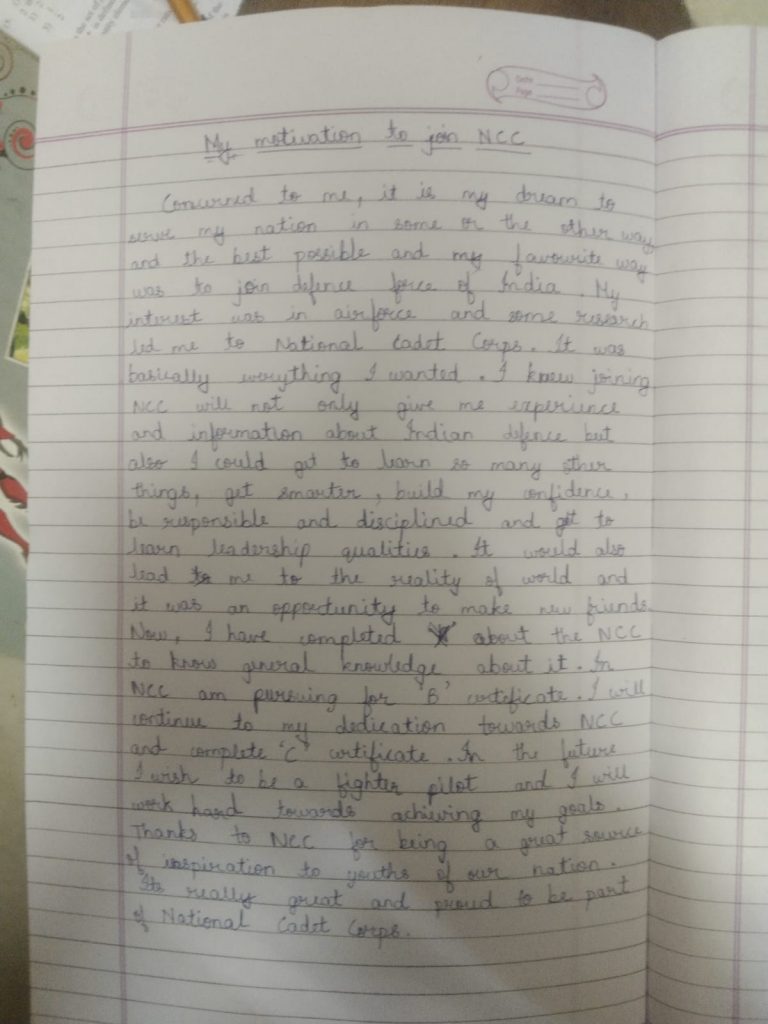 Date
Page
My motivation to join NCC
Concurred to me, it is my dream to
serve my nation in some or the other way
and the best possible and my favourite way
was to join defence force of India. My
interest was in airforce and some research
led me to National Cadet Corps. It was
basically everything I wanted. I knew joining
NCC will not only give me experience
and information about Indian defence but
also I could get to learn so many other
things, get smarter, build my confidence,
be responsible and disciplined and get to
learn leadership qualities. It would also
lead to me to the reality of world and
it was an opportunity to make new friends.
Now, I have completed about the NCC
to know general knowledge about it. In
NCC am pursuing for 'B' certificate. I will
continue to my dedication towards NCC
and complete 'C' certificate. In the future
I wish to be a fighter pilot and I will
work hard towards achieving my goals.
Thanks to NCC for being a great source
of inspiration to youths of our nation.
Its really great and proud to be part
of National Cadet Corps.